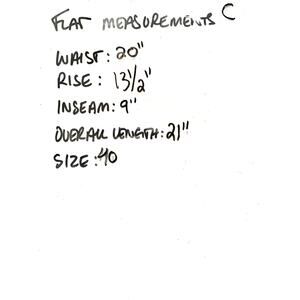 FLAT MEASUREMENTS C
WAIST: 20"
RISE: 13½"
INSEAM: 9"
OVERALL LENGTH: 21"
SIZE: 40